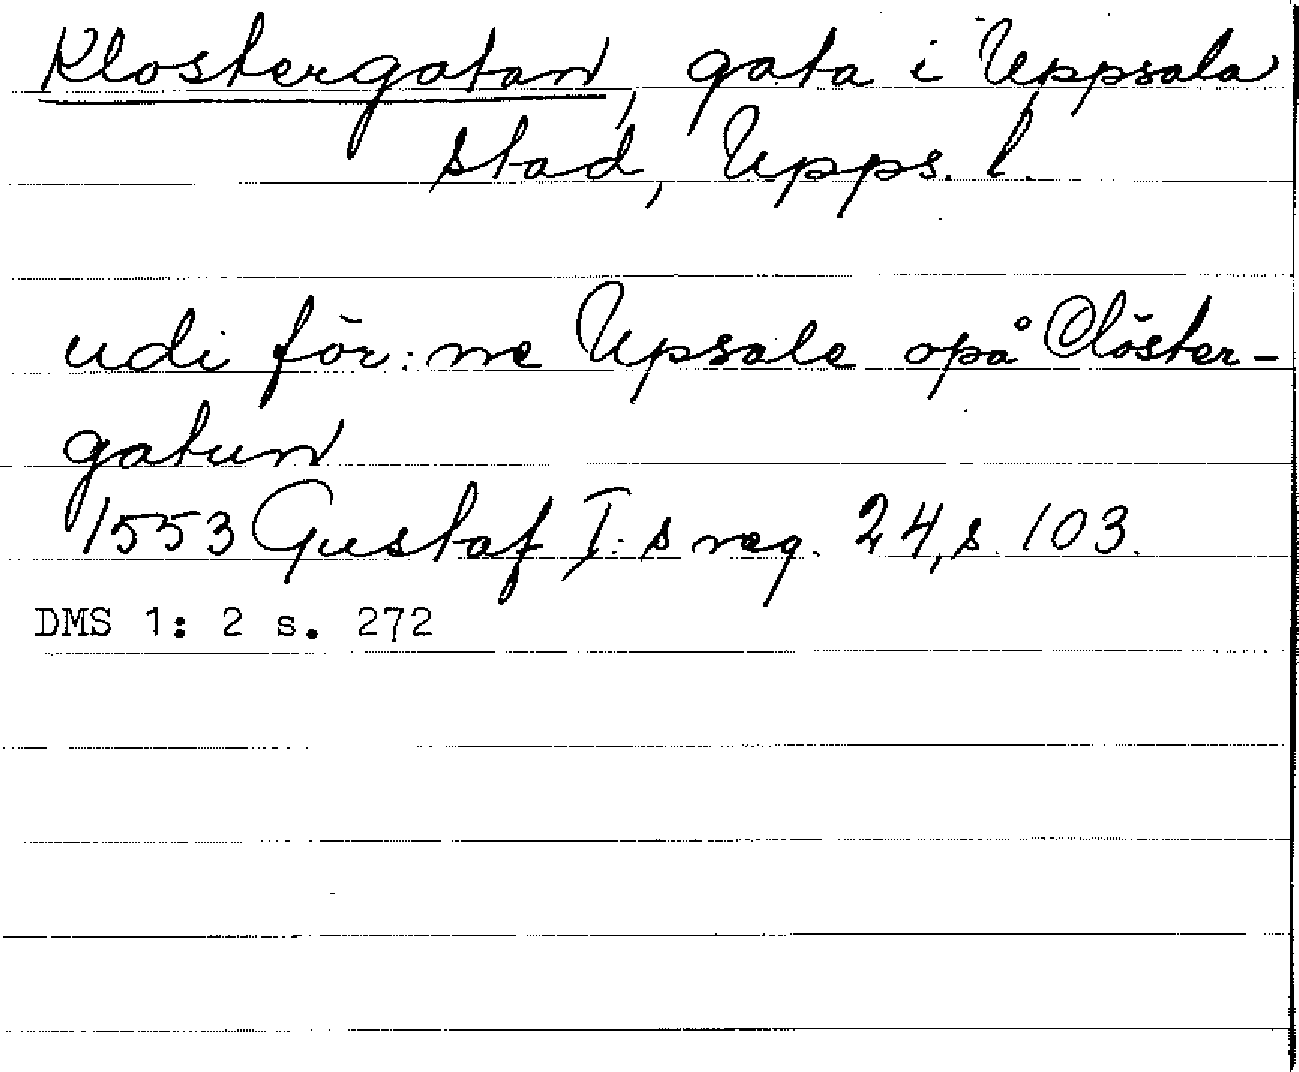 Klostergatan, gata i Uppsala
stad, Upps. l.
udi för:ne Upsale opå Clöster-
gatun
1553 Gustaf I:s reg. 24, s. 103.
DMS 1: 2 s. 272